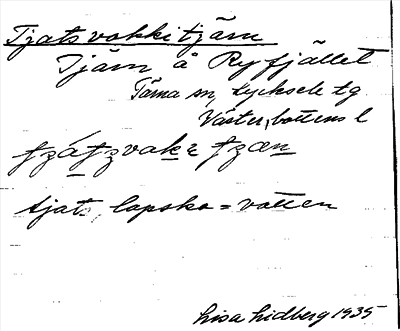 Tjatsvokkitjärn
Tjärn å Ryfjället
Tärna sn, Lycksele tg
Västerbottens l
tjats, lapska = vatten
Lisa Lidberg 1935